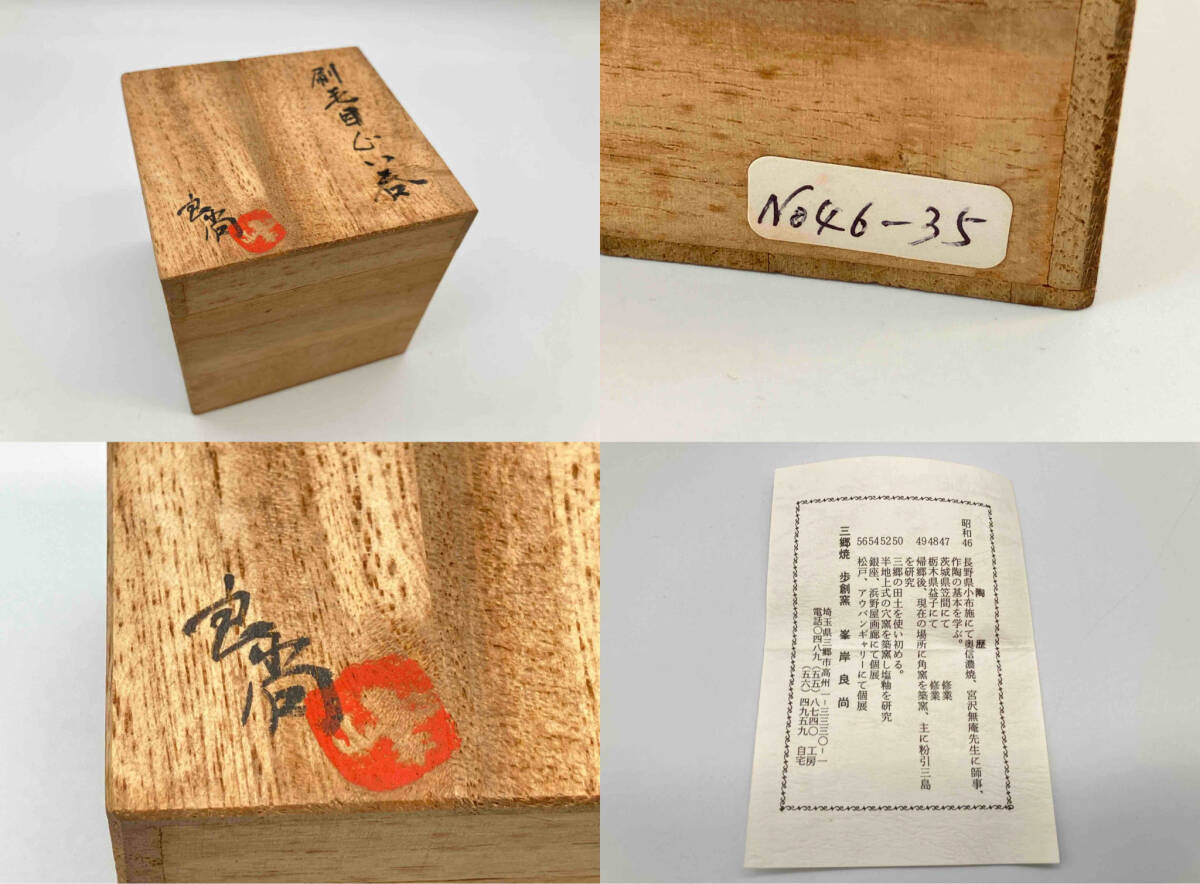 刷毛目ぐい呑
良尚
No46-35
良尚
陶歴
昭和46 長野県小布施にて奥信濃焼、宮沢無庵先生に師事、
作陶の基本を学ぶ。
47 茨城県笠間にて 修業
48 栃木県益子にて 修業
49 帰郷後、現在の場所に角窯を築窯、主に粉引三島
を研究
50 三郷の田土を使い初める。
52 半地上式の穴窯を築窯し塩釉を研究
54 銀座、浜野屋画廊にて個展
56 松戸、アウバンギャリーにて個展
三郷焼 歩創窯 峯岸良尚
埼玉県三郷市高州一-三三〇-一
電話〇四八九(五五)八七四〇 工房
(五六)四九五九 自宅